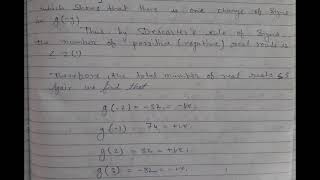 which shows that there is one change of signs
in g(-y)
Thus by Descarte's rule of signs
the number of positive (negative) real roots is
≤ 2(1)
Therefore, the total number of real roots ≤ 3
Again we find that
g(-2) = -32 = -ve,
g(-1) = 74 = +ve,
g(2) = 32 = +ve,
g(3) = -32 = -ve,